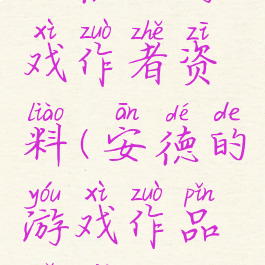 xì zuò zhě zī
戏作者资
liào ān dé de
料(安德的
yóu xì zuò pǐn
游戏作品